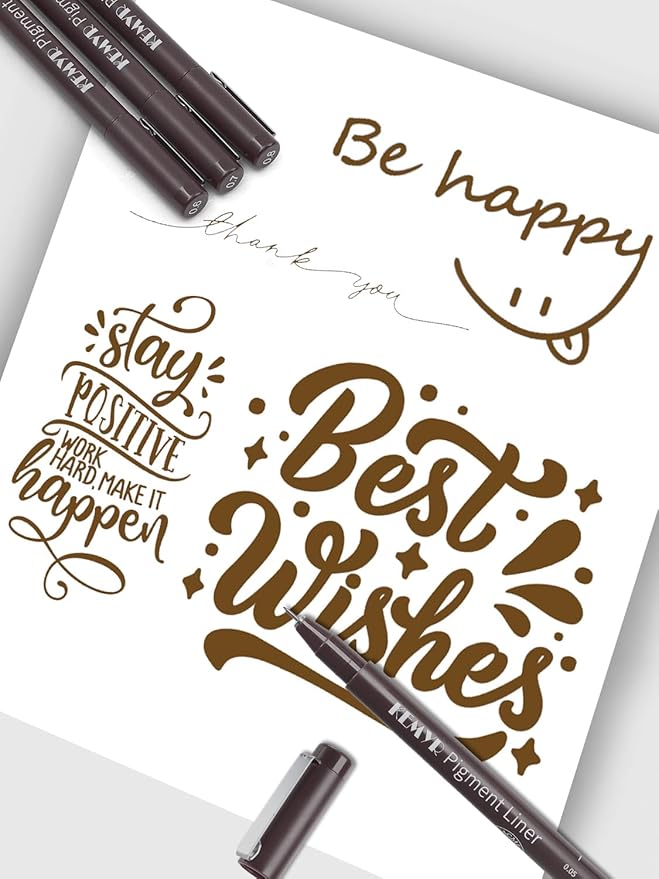 KEMYR Pigment
KEMYR Pigment
KEMYR Pigment
06
07
08
Be happy
thank you
stay
POSITIVE
WORK
HARD, MAKE IT
happen
Best
Wishes
KEMYR Pigment Liner
0.05